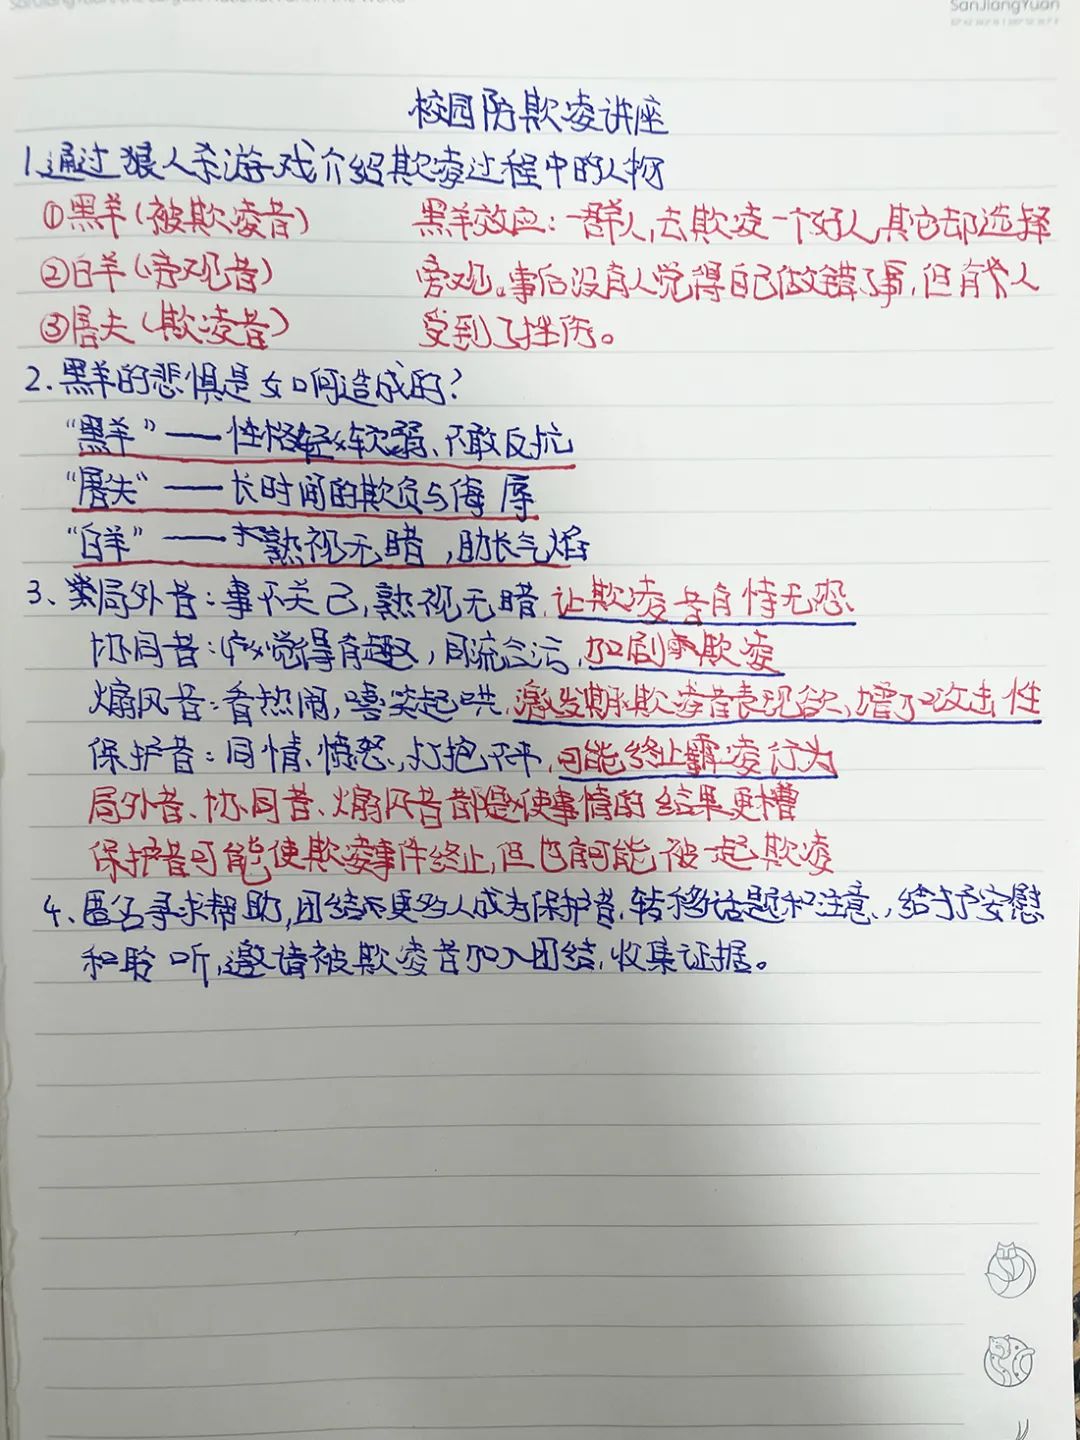 SanJiangYuan
校园防欺凌讲座
1.通过狼人杀游戏介绍欺凌过程中的人物
①黑羊(被欺凌者) 黑羊效应:一群人,去欺凌一个好人,其它却选择
②白羊(旁观者) 旁观。事后没有人觉得自己做错了事,但有人
③屠夫(欺凌者) 受到了挫伤。
2.黑羊的悲惧是如何造成的?
“黑羊”——性格软弱、不敢反抗
“屠夫”——长时间的欺负与侮辱
“白羊”——熟视无睹,助长气焰
3、局外者:事不关己,熟视无睹,让欺凌者有恃无恐
协同者:觉得有趣,同流合污,加剧欺凌
煽风者:看热闹,嘻笑起哄,激发欺凌者表现欲、增加攻击性
保护者:同情、愤怒、打抱不平,可能终止霸凌行为
局外者、协同者、煽风者都是使事情的结果更糟
保护者可能使欺凌事件终止,但也有可能被一起欺凌
4、匿名寻求帮助,团结更多人成为保护者,转移话题和注意,给予安慰
和聆听,邀请被欺凌者加入团结,收集证据。